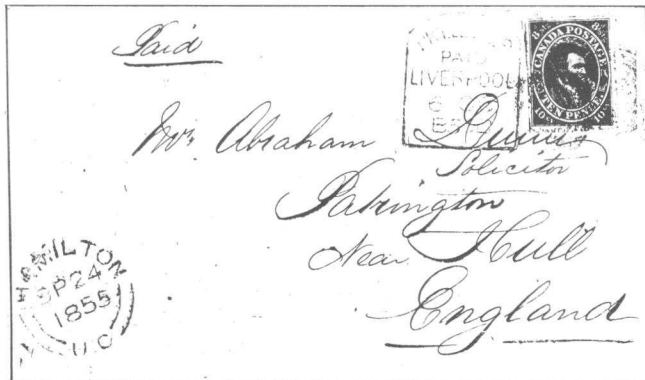 Paid
PAID
LIVERPOOL
CANADA POSTAGE
TEN PENCE
Mr. Abraham
Solicitor
Patrington
Near Hull
England
HAMILTON
SP 24
1855
U.C